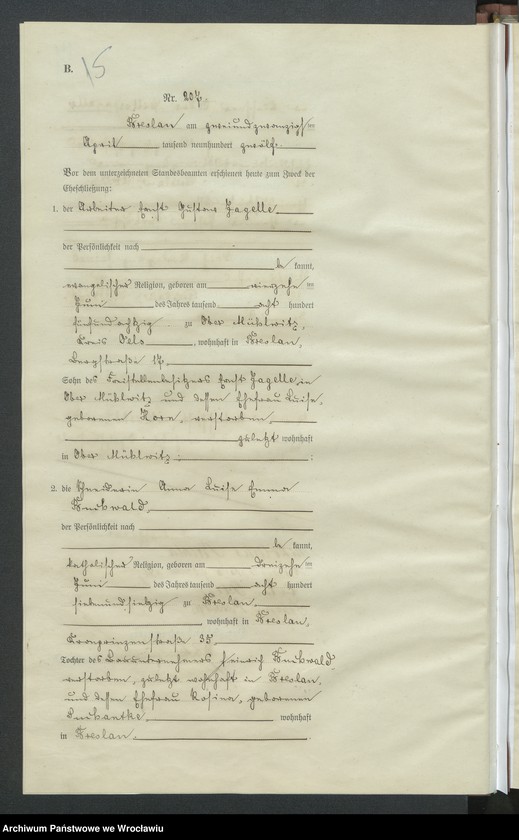 B. 15
Nr. 207.
Breslau am zweiundzwanzigsten
April tausend neunhundert zwölf
Vor dem unterzeichneten Standesbeamten erschienen heute zum Zweck der
Eheschließung:
1. der Arbeiter Ernst Gustav Zagelle
der Persönlichkeit nach
be kannt,
evangelischer Religion, geboren am vierzehnten
Juni des Jahres tausend acht hundert
fünfundachtzig zu Ober Mühlwitz,
Kreis Oels, wohnhaft in Breslau,
Bergstraße 17,
Sohn des Freistellenbesitzers Ernst Zagelle, in
Ober Mühlwitz und dessen Ehefrau Luise,
geborenen Korn, verstorben,
zuletzt wohnhaft
in Ober Mühlwitz ;
2. die Schneiderin Anna Luise Emma
der Persönlichkeit nach
be kannt,
katholischer Religion, geboren am dreizehnten
Juni des Jahres tausend acht hundert
siebenundsiebzig zu Breslau,
wohnhaft in Breslau,
Kronprinzenstraße 35,
Tochter des Bauunternehmers Heinrich
verstorben, zuletzt wohnhaft in Breslau,
und dessen Ehefrau Rosina, geborenen
wohnhaft
in Breslau.
Archiwum Państwowe we Wrocławiu